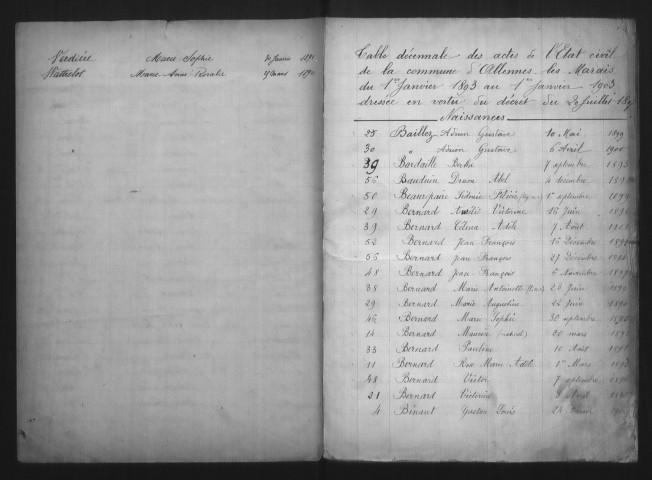 Verdière Marie Sophie 20 Janvier 1891
Wattelot Marie Anne Rosalie 9 mars 1890
Table décennale des actes de l'Etat civil
de la commune d'Allennes les Marais
du 1er Janvier 1893 au 1er Janvier 1903
dressée en vertu du décret du 20 Juillet
Naissances
25 Baillez Adrien Gustave 10 Mai 1899
30 " Adrien Gustave 6 Avril 1900
39 Bardaille Berthe 7 septembre 1893
55 Bauduin Abel 4 décembre
50 Beaurepaire 1er septembre
29 Bernard Victorine 16 Juin
39 Bernard Edma Adèle 7 Août
52 Bernard Jean François 16 Décembre
55 Bernard Jean François 27 Décembre
48 Bernard Jean François 6 Novembre
38 Bernard Marie Antoinette 26 Juin
29 Bernard Marie Augustine 22 Juin
46 Bernard Marie Sophie 30 septembre
14 Bernard Maurice 20 mars
33 Bernard Pauline 10 Août
11 Bernard Rose Marie Adèle 1er Mars
48 Bernard Victor 7 septembre
21 Bernard Victorine
4 Bénaut Gaston Louis